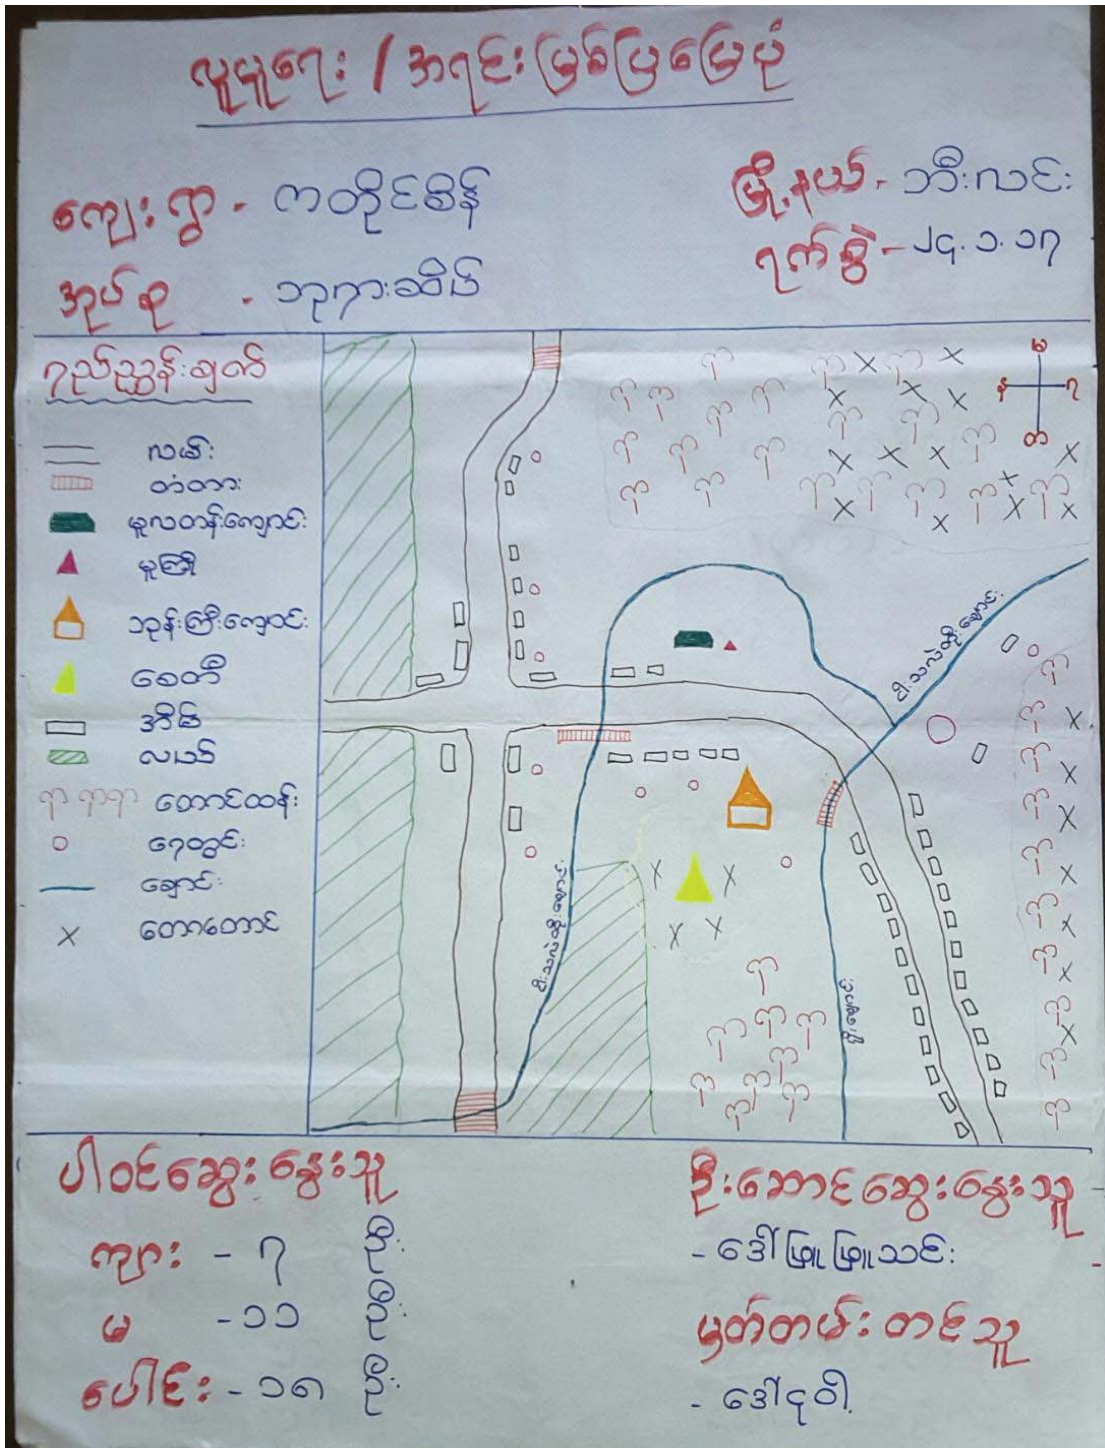 လူမှုရေး / အရင်းမြစ်ပြမြေပုံ
ကျေးရွာ - ကတိုင်စိန်
မြို့နယ် - ဘီးလင်း
အုပ်စု - ဘုကားဆိပ်
ရက်စွဲ - ၂၄.၁.၁၇
ရည်ညွှန်းချက်
လမ်း
တံတား
မူလတန်းကျောင်း
မူကြို
ဘုန်းကြီးကျောင်း
စေတီ
အိမ်
လယ်
တောင်ထန်း
ရေတွင်း
ချောင်း
တောတောင်
မ
န
ရ
တ
ငါးသလဲထိုးချောင်း
ငါးသလဲထိုးချောင်း
ပါဝင်ဆွေးနွေးသူ
ကျား - ၇ ဦး
မ - ၁၁ ဦး
ပေါင်း - ၁၈ ဦး
ဦးဆောင်ဆွေးနွေးသူ
- ဒေါ်ဖြူဖြူသင်း
မှတ်တမ်းတင်သူ
- ဒေါ်ငုဝါ